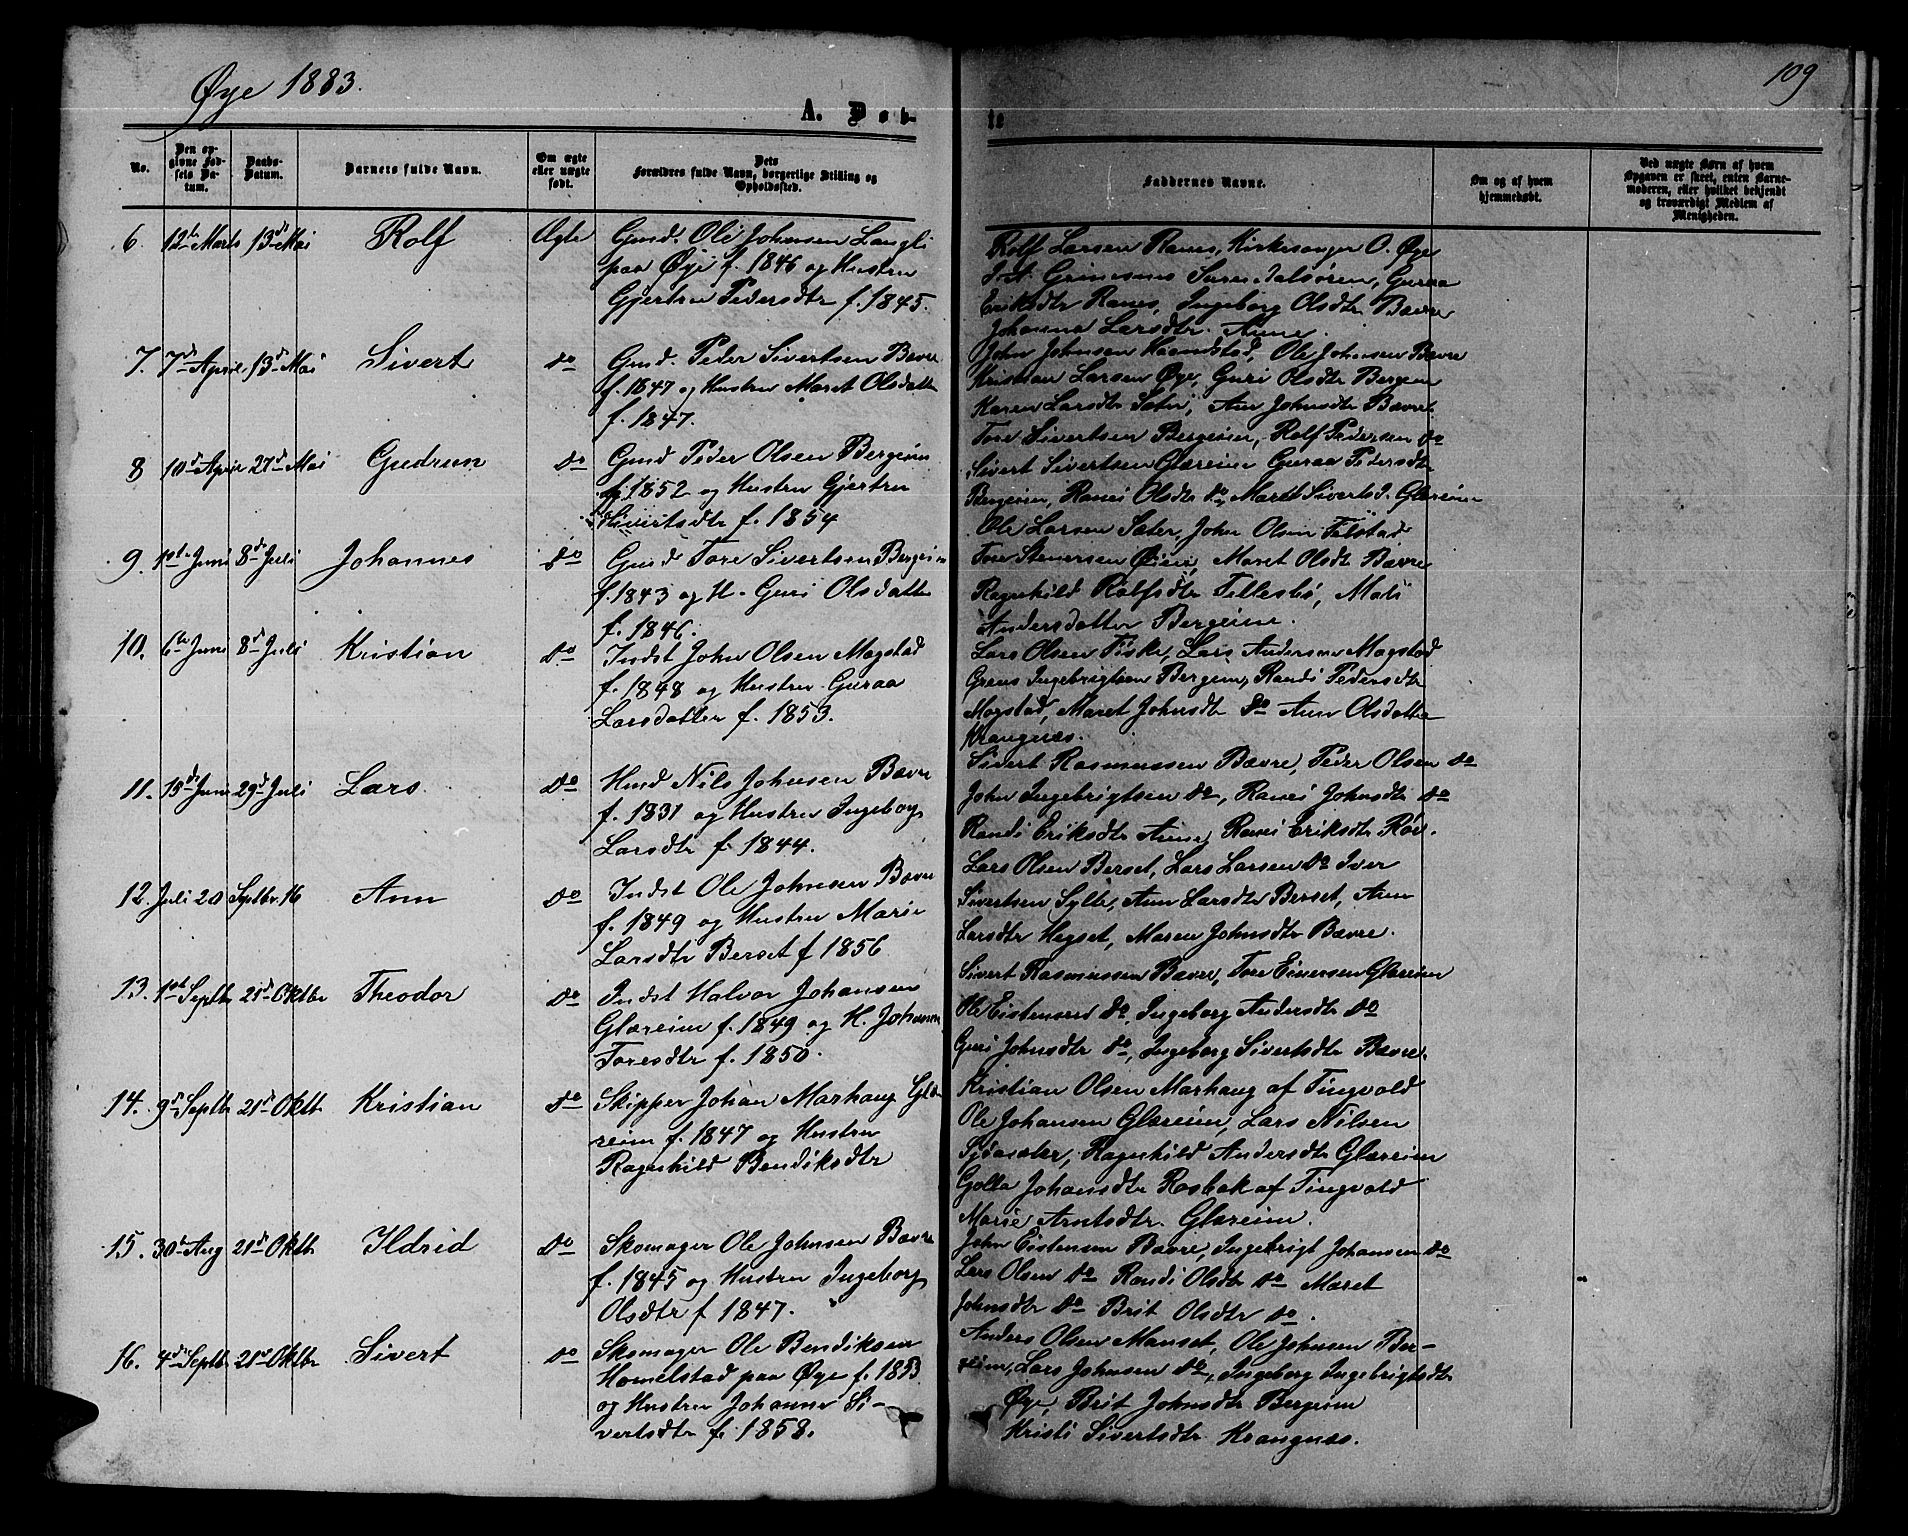 Øye 1883.
109
A. Døb-
te
No.
Den op-
givne Fød-
sels Da-
tum.
Daabs-
Datum.
Barnets fulde Navn.
Om ægte
eller uægte
født.
Dets
Forældres fulde Navn, borgerlige Stilling og
Opholdssted.
Faddernes Navne.
Om og af hvem
hjemmedøbt.
Ved uægte Børn af hvem
Opgaven er skeet, enten Barne-
moderen, eller hvilket bekjendt
og troværdigt Medlem af
Menigheden.
6. 12te Marts 13de Mai Rolf Ægte
Gmd. Ole Johnsen Langli
paa Øye f. 1846 og Hustru
Gjertru Pedersdtr f. 1845.
Rolf Larsen Ranes, Kirkesanger O. Øye
Grimsnes Surendalsøren, Guraa
Eriksdtr Ranes, Ingeborg Olsdtr Bævre
Johanna Larsdtr. Aune.
7. 7de April 13de Mai Sivert do
Gmd. Peder Sivertsen Bævre
f. 1847 og Hustru Maret Olsdatter
f. 1847.
John Johnsen Haandstad, Ole Johnsen Bævre
Kristian Larsen Øye, Guri Olsdtr Bergeim
Karen Larsdtr Sæter, Ann Johnsdtr Bævre.
8 10de April 27de Mai Gudrun do
Gmd Peder Olsen Bergeim
f. 1852 og Hustru Gjertru
Sivertsdtr f. 1854
Tore Sivertsen Bergeim, Rolf Pedersen do
Sivert Sivertsen Glæreim Guraa Pedersdtr
Bergeim, Ranei Olsdtr do, Maret Sivertsd. Glæreim
9. 1ste Juni 8de Juli Johannes do
Gmd Tore Sivertsen Bergeim
f. 1843 og H. Guri Olsdatter
f. 1846.
Ole Larsen Sæter, John Olsen Telstad
Tore Stenersen Øien, Maret Olsdtr Bævre
Ragnhild Rolfsdtr Tellesbø, Mali
Andersdatter Bergeim.
10. 6te Juni 8de Juli Kristian do
Indst John Olsen Mogstad
f. 1848 og Hustru Guraa
Larsdatter f. 1853.
Lars Olsen Fiske, Lars Andersen Mogstad
Ingebrigtsen Bergeim, Randi Pedersdtr
Mogstad, Maret Johnsdtr do Ann Olsdatter
Krangnæs.
11. 15de Juni 29de Juli Lars do
Hmd Nils Johnsen Bævre
f. 1831 og Hustru Ingeborg
Larsdtr f. 1844.
Sivert Rasmussen Bævre, Peder Olsen do
John Ingebrigtsen do, Ranei Johnsdtr do
Randi Eriksdtr Aune, Ranei Eriksdtr Røv.
12. Juli 20 Septbr. 16 Ann do
Indst Ole Johnsen Bævre
f. 1849 og Hustru Marie
Larsdtr Berset f 1856
Lars Olsen Berset, Lars Larsen do Iver
Sivertsen Sylte, Ann Larsdtr Berset, Ann
Larsdtr Hegset, Maren Johnsdtr Bævre.
13. 1ste Septbr 21de Oktbr Theodor do
Indst Halvor Johansen
Glæreim f. 1849 og H. Johanna
Toresdtr f. 1850.
Sivert Rasmussen Bævre, Tore Einersen Glæreim
Ole Eistensen do, Ingeborg Andersdtr do
Guri Johnsdtr do, Ingeborg Sivertsdtr Bævre.
14. 9de Septbr 21de Oktb. Kristian do
Skipper Johan Marhaug Glæ-
reim f. 1847 og Hustru
Ragnhild Bendiksdtr
Kristian Olsen Marhaug af Tingvold
Ole Johansen Glæreim, Lars Nilsen
Ragnhild Andersdtr Glæreim
Golla Johansdtr Rosbak af Tingvold
Marie Arntsdtr. Glæreim.
15. 30te Aug 21de Oktb. Ildrid do
Skomager Ole Johnsen Bævre
f. 1845 og Hustru Ingeborg
Olsdtr f 1847.
John Eistensen Bævre, Ingebrigt Johansen do
Lars Olsen do Randi Olsdtr do Maret
Johnsdtr do Brit Olsdtr do.
16. 4de Septbr 21de Oktbr Sivert do
Skomager Ole Bendiksen
Homelstad paa Øye f. 1853
og Hustru Johanne Si-
vertsdtr f. 1858.
Anders Olsen Manset, Ole Johnsen Ber-
geim, Lars Johnsen do, Ingeborg Ingebrigtsdtr
Øye, Brit Johnsdtr Bergeim
Kristi Sivertsdtr Krangnæs.